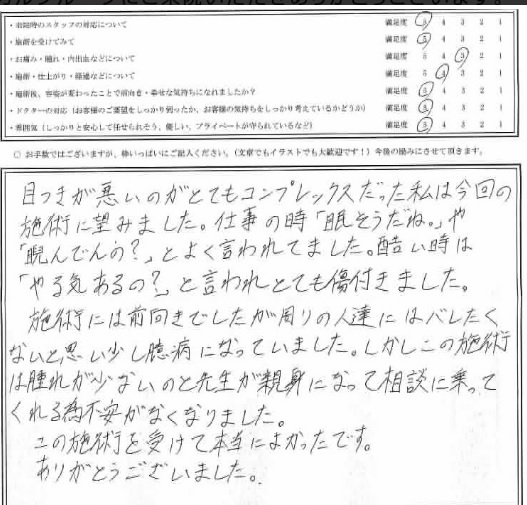 ・来院時のスタッフの対応について 満足度 5 4 3 2 1
・施術を受けてみて 満足度 5 4 3 2 1
・お痛み・腫れ・内出血などについて 満足度 5 4 3 2 1
・施術・仕上がり・経過などについて 満足度 5 4 3 2 1
・施術後、容姿が変わったことで前向き・幸せな気持ちになれましたか? 満足度 5 4 3 2 1
・ドクターの対応(お客様のご要望をしっかり伺ったか、お客様の気持ちをしっかり考えているかどうか) 満足度 5 4 3 2 1
・雰囲気(しっかりと安心して任せられそう、優しい、プライベートが守られているなど) 満足度 5 4 3 2 1
○ お手数ではございますが、枠いっぱいにご記入ください。(文章でもイラストでも大歓迎です!)今後の励みにさせて頂きます。
目つきが悪いのがとてもコンプレックスだった私は今回の
施術に望みました。仕事の時「眠そうだね。」や
「睨んでんの?」とよく言われてました。酷い時は
「やる気あるの?」と言われとても傷付きました。
施術には前向きでしたが周りの人達にはバレたく
ないと思い少し臆病になっていました。しかしこの施術
は腫れが少ないのと先生が親身になって相談に乗って
くれる為不安がなくなりました。
この施術を受けて本当によかったです。
ありがとうございました。